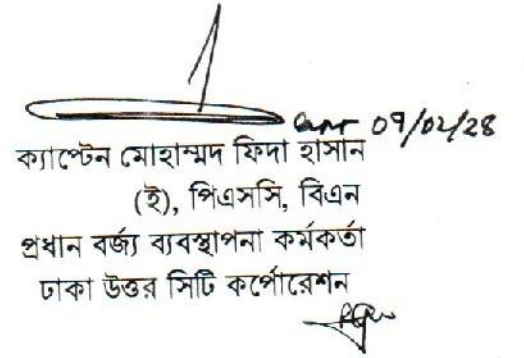 ০৭/০২/২৪
ক্যাপ্টেন মোহাম্মদ ফিদা হাসান
(ই), পিএসসি, বিএন
প্রধান বর্জ্য ব্যবস্থাপনা কর্মকর্তা
ঢাকা উত্তর সিটি কর্পোরেশন